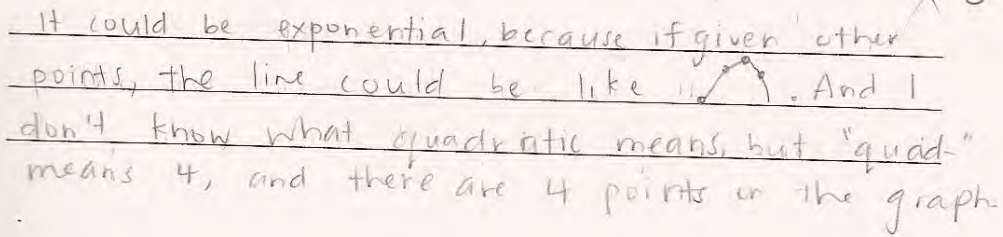 It could be exponential, because if given other
points, the line could be like . And I
don't know what quadratic means, but "quad-"
means 4, and there are 4 points on the graph.